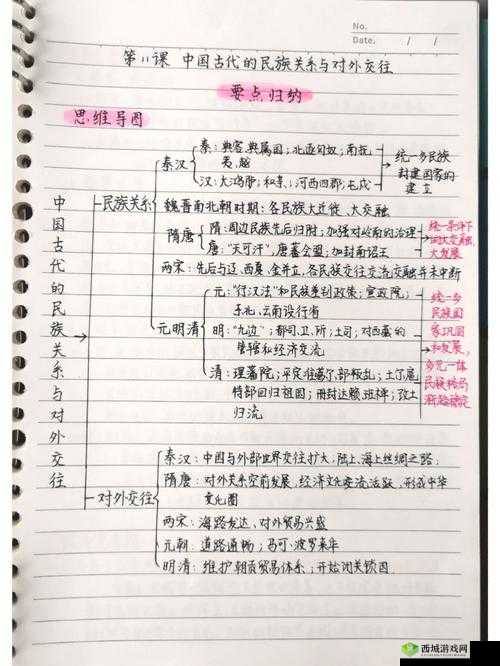 No.
Date. / /
第11课 中国古代的民族关系与对外交往
要点归纳
思维导图
中国古代的民族关系与对外交往
民族关系
秦汉
秦：典客、典属国；北逐匈奴；南抚
夷、越
汉：大鸿胪；和亲；河西四郡；屯戍
统一多民族
封建国家的
建立
魏晋南北朝时期：各民族大迁徙、大交融
隋唐
隋：周边民族先后归附；加强对岭南的治理
唐："天可汗"，唐蕃会盟；加封南诏王
统一条件下
的大交融、
大发展
两宋：先后与辽、西夏、金并立，各民族交往交流交融并未中断
元明清
元："行汉法"和民族差别政策；宣政院；
东北、云南设行省
明："九边"；都司、卫、所；土司；对西藏的
管辖和经济交流
清：理藩院；平定准噶尔部叛乱；土尔扈
特部回归祖国；册封达赖、班禅；改土
归流
统一多
民族国
家巩固
和发展，
多元一体
民族格局
渐趋稳定
对外交往
秦汉：中国与外部世界交往扩大，陆上、海上丝绸之路；
隋唐：对外关系空前发展，经济文化交流活跃，形成中华
文化圈
两宋：海路发达、对外贸易兴盛
元朝：道路通畅；马可·波罗来华
明清：维护朝贡贸易体系；开始闭关锁国
西城游戏网